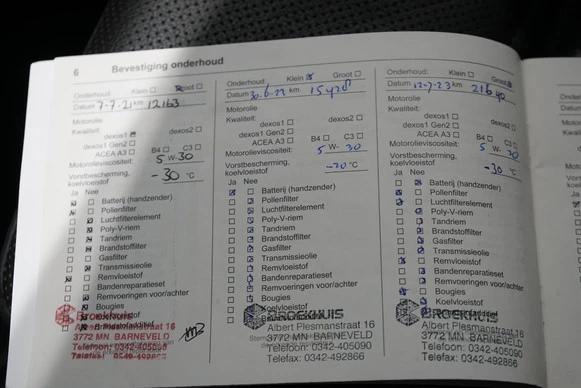 6 Bevestiging onderhoud
Onderhoud: Klein Groot
Datum 7-7-21 km 12163
Motorolie
Kwaliteit:
dexos1 dexos2
dexos1 Gen2
ACEA A3 B4 C3
Motorolieviscositeit:
5 W-30
Vorstbescherming,
koelvloeistof
-30 °C
Ja Nee
Batterij (handzender)
Pollenfilter
Luchtfilterelement
Poly-V-riem
Tandriem
Brandstoffilter
Gasfilter
Transmissieolie
Remvloeistof
Bandenreparatieset
Remvoeringen voor/achter
Bougies
BROEKHUIS
Albert Plesmanstraat 16
3772 MN BARNEVELD
Telefoon: 0342-405090
Telefax: 0342-492866
Onderhoud: Klein Groot
Datum km
Motorolie
Kwaliteit:
dexos1 dexos2
dexos1 Gen2
ACEA A3 B4 C3
Motorolieviscositeit:
5 W-30
Vorstbescherming,
koelvloeistof
°C
Ja Nee
Batterij (handzender)
Pollenfilter
Luchtfilterelement
Poly-V-riem
Tandriem
Brandstoffilter
Gasfilter
Transmissieolie
Remvloeistof
Bandenreparatieset
Remvoeringen voor/achter
Bougies
Koelvloeistof
BROEKHUIS
Albert Plesmanstraat 16
3772 MN BARNEVELD
Telefoon: 0342-405090
Telefax: 0342-492866
Onderhoud: Klein Groot
Datum 12-7-23 km 21640
Motorolie
Kwaliteit:
dexos1 dexos2
dexos1 Gen2
ACEA A3 B4 C3
Motorolieviscositeit:
5 W-30
Vorstbescherming,
koelvloeistof
-30 °C
Ja Nee
Batterij (handzender)
Pollenfilter
Luchtfilterelement
Poly-V-riem
Tandriem
Brandstoffilter
Gasfilter
Transmissieolie
Remvloeistof
Bandenreparatieset
Remvoeringen voor/achter
Bougies
Koelvloeistof
BROEKHUIS
Albert Plesmanstraat 16
3772 MN BARNEVELD
Telefoon: 0342-405090
Telefax: 0342-492866